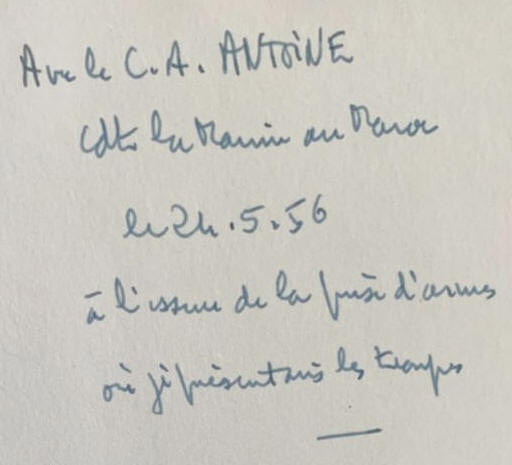 Avec le C.A. ANTOINE
Cdt la Marine au Maroc
le 24.5.56
à l'issue de la prise d'armes
où je présentais les troupes